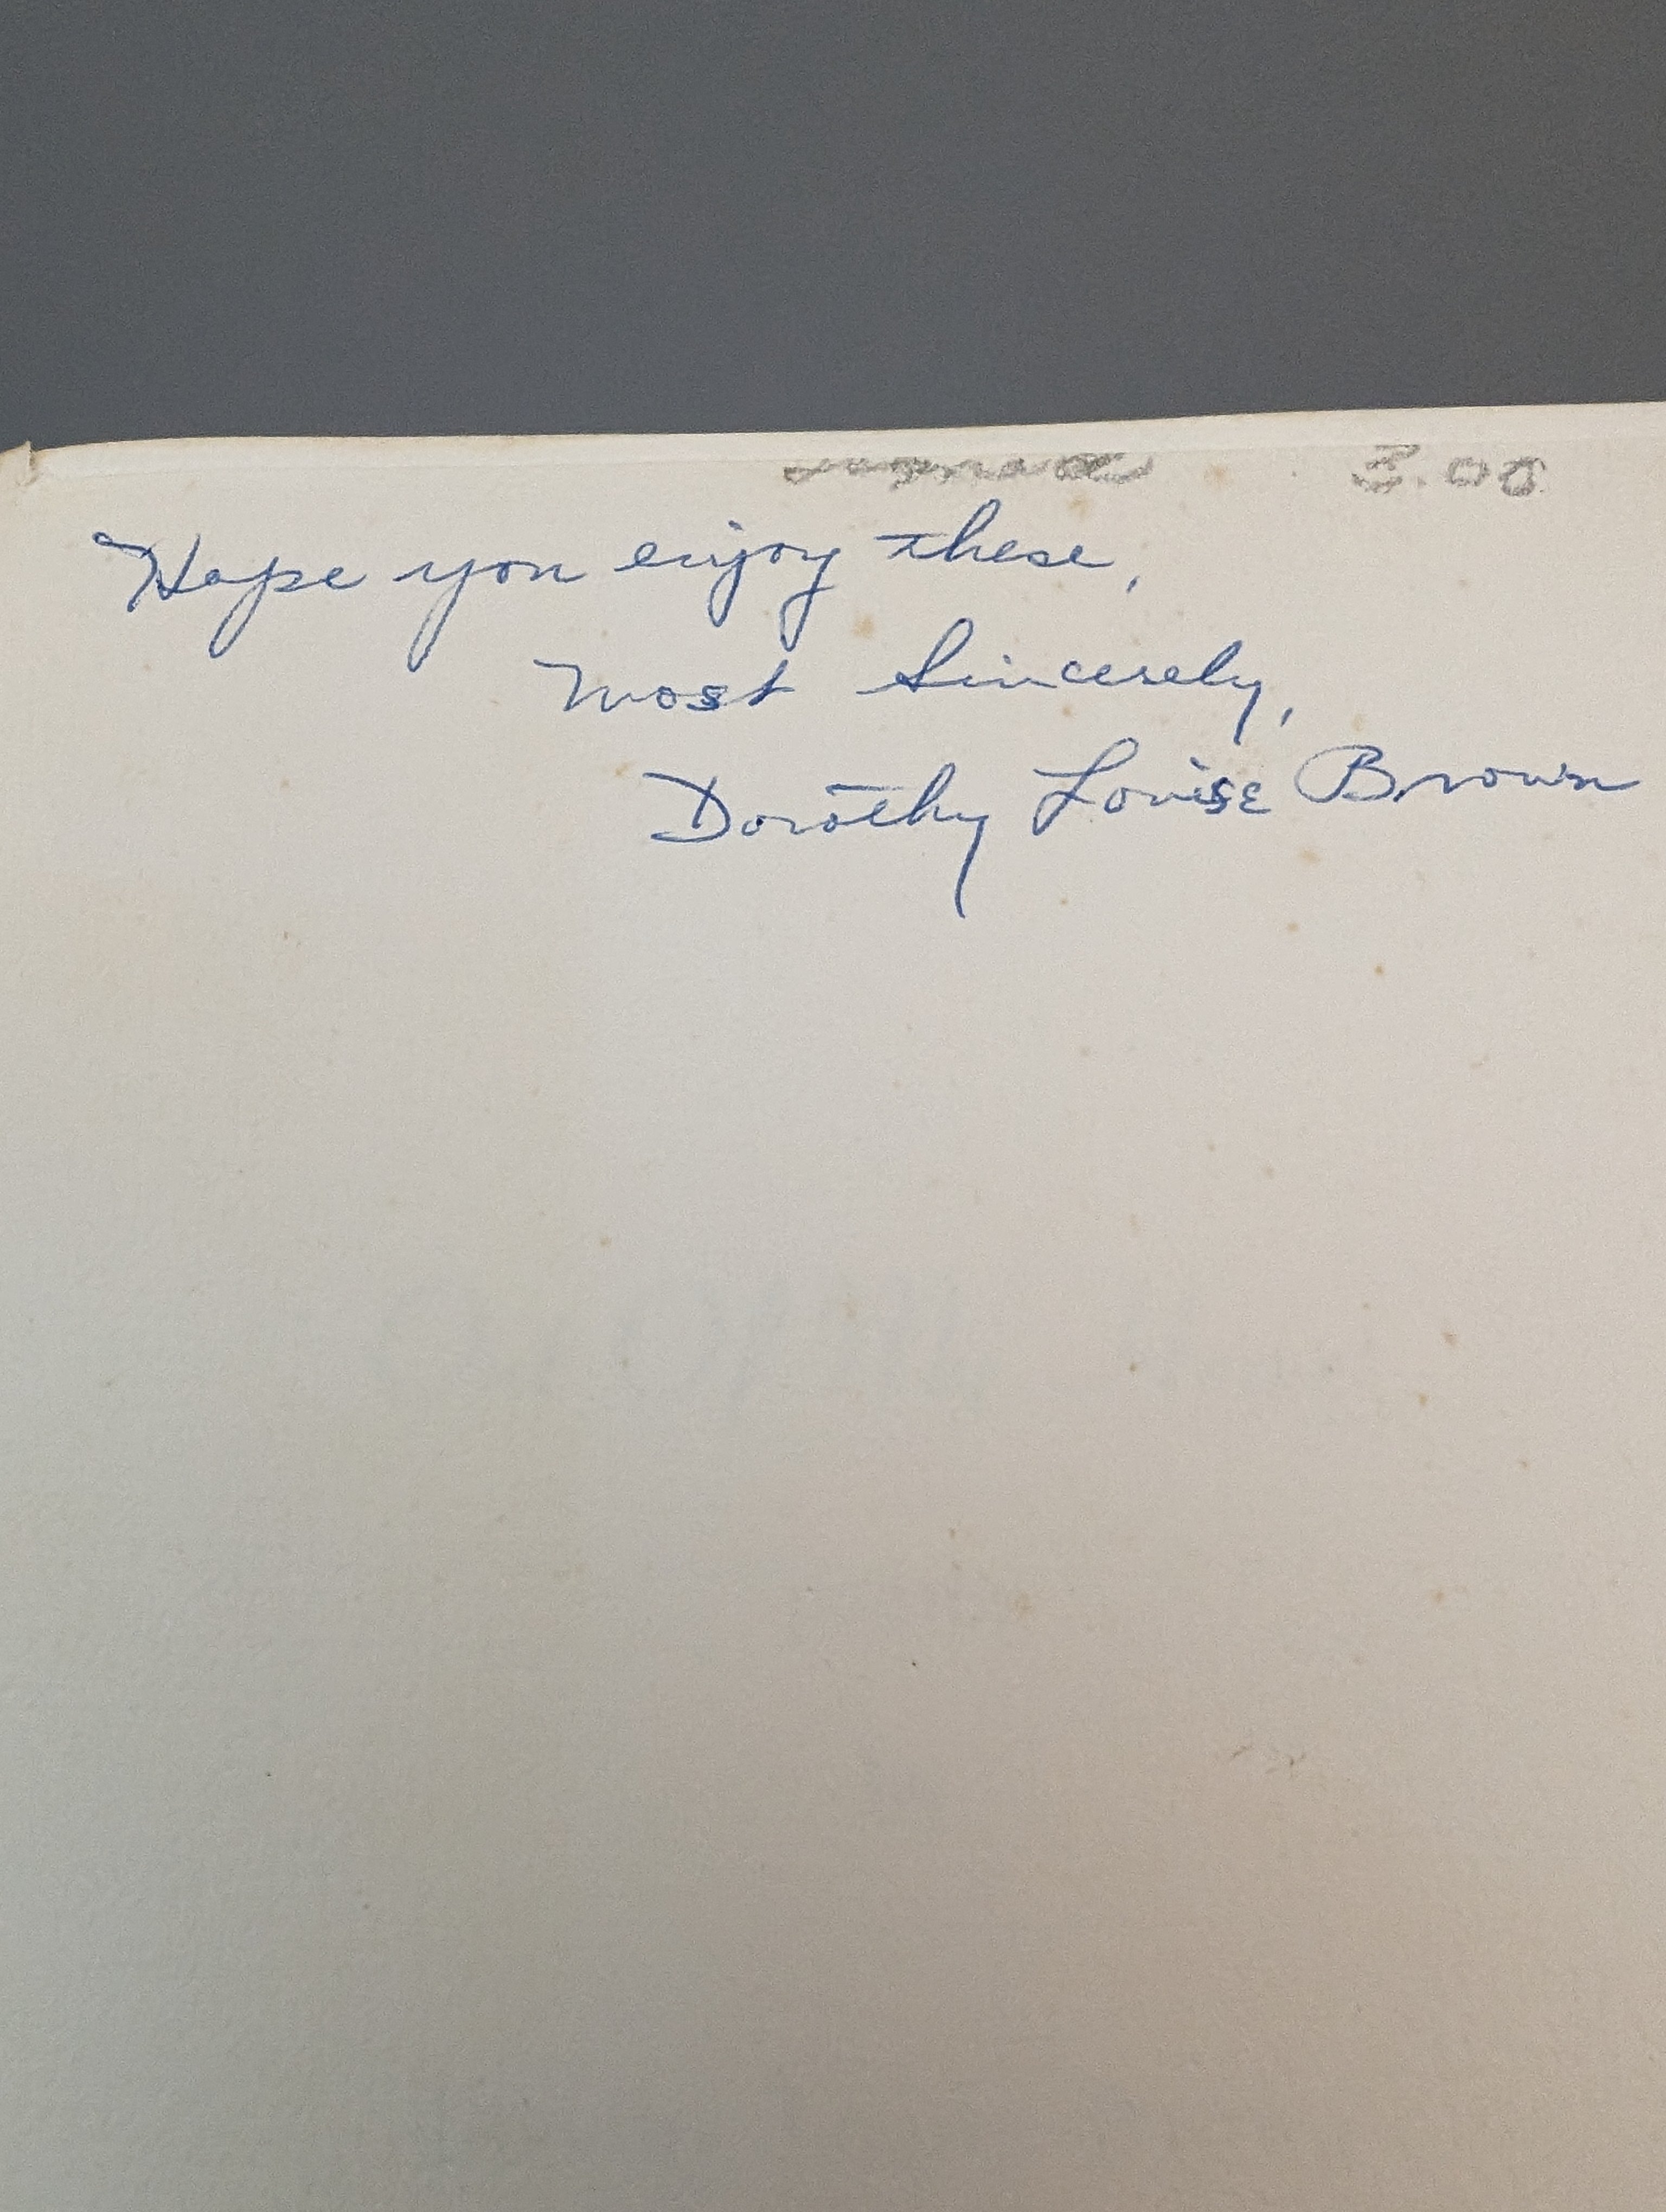 signed 3.00
Hope you enjoy these,
Most Sincerely,
Dorothy Louise Brown